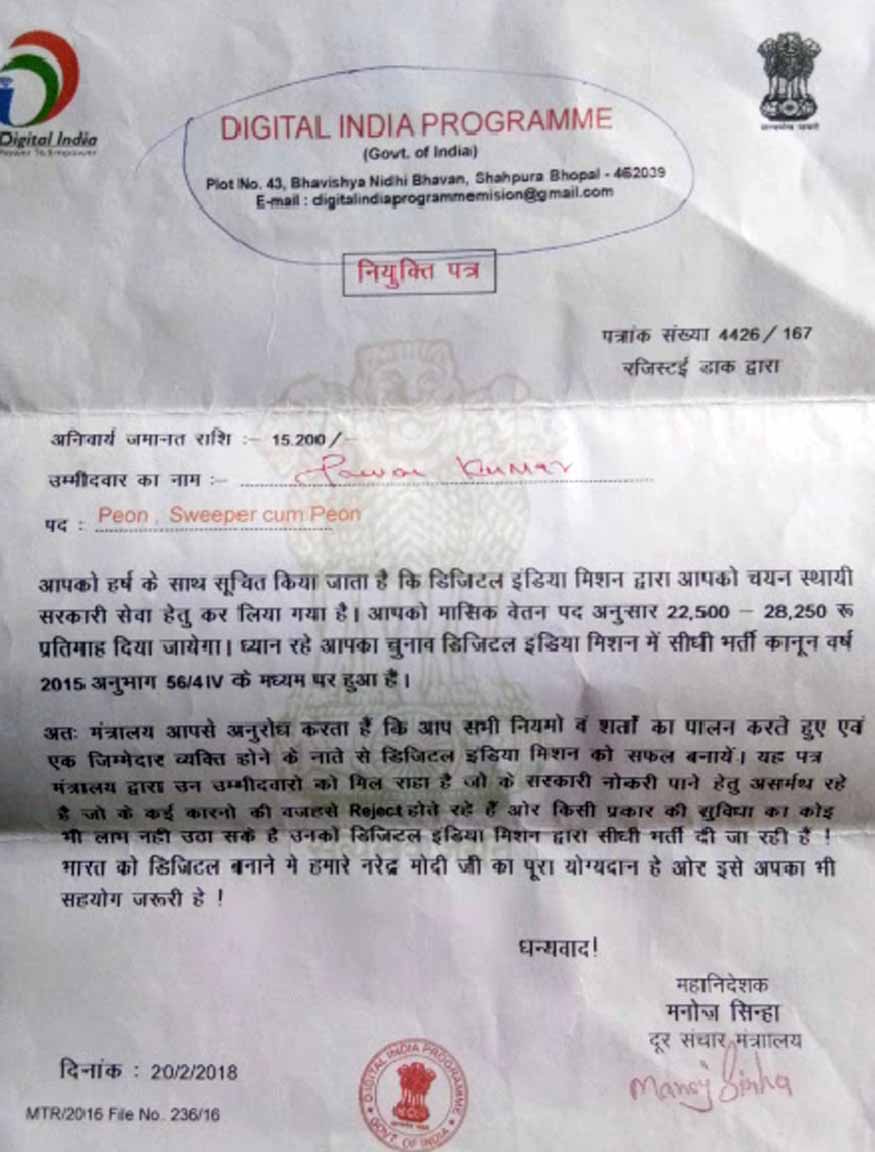 Digital India
Power To Empower
DIGITAL INDIA PROGRAMME
(Govt. of India)
Plot No. 43, Bhavishya Nidhi Bhavan, Shahpura Bhopal - 462039
E-mail : digitalindiaprogrammemision@gmail.com
नियुक्ति पत्र
पत्रांक संख्या 4426 / 167
रजिस्टई डाक द्वारा
अनिवार्य जमानत राशि :– 15.200/–
उम्मीदवार का नाम :– Pawan Kumar
पद : Peon , Sweeper cum Peon
आपको हर्ष के साथ सूचित किया जाता है कि डिजिटल इंडिया मिशन द्वारा आपको चयन स्थायी
सरकारी सेवा हेतु कर लिया गया है। आपको मासिक वेतन पद अनुसार 22,500 – 28,250 रू
प्रतिमाह दिया जायेगा। ध्यान रहे आपका चुनाव डिजिटल इंडिया मिशन में सीधी भर्ती कानून वर्ष
2015 अनुभाग 56/4 IV के मध्यम पर हुआ है।
अतः मंत्रालय आपसे अनुरोध करता हैं कि आप सभी नियमो व शर्तों का पालन करते हुए एवं
एक जिम्मेदार व्यक्ति होने के नाते से डिजिटल इंडिया मिशन को सफल बनायें। यह पत्र
मंत्रालय द्वारा उन उम्मीदवारो को मिल राहा है जो के सरकारी नोकरी पाने हेतु असर्मथ रहे
है जो के कई कारनो की वजहसे Reject होते रहे हैं ओर किसी प्रकार की सुविधा का कोइ
भी लाभ नही उठा सके है उनको डिजिटल इंडिया मिशन द्वारा सीधी भर्ती दी जा रही हैं !
भारत को डिजिटल बनाने मे हमारे नरेद्र मोदी जी का पूरा योग्यदान हे ओर इसे अपका भी
सहयोग जरूरी हे !
धन्यवाद!
महानिदेशक
मनोज सिन्हा
दूर संचार मंत्राालिय
Manoj Sinha
दिनांक : 20/2/2018
MTR/2016 File No. 236/16
DIGITAL INDIA PROGRAMME
GOVT. OF INDIA